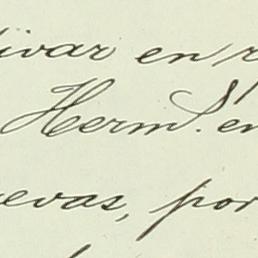 ivar en r
Herms. en
evas, por